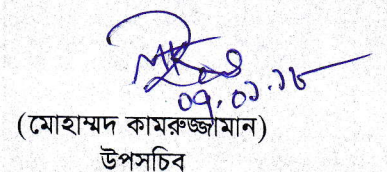 ০৭.০১.১৮
(মোহাম্মদ কামরুজ্জামান)
উপসচিব